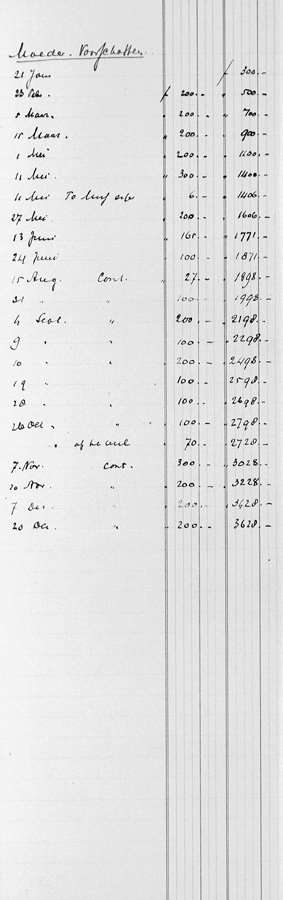 Moeder. Voorschotten.
21 Jan ƒ 300.-
23 Feb. ƒ 200.- " 500.-
5 Maart. " 200.- " 700.-
15 Maart. " 200.- " 900.-
1 Mei " 200.- " 1100.-
11 Mei " 300.- " 1400.-
11 Mei To " 6.- " 1406.-
27 Mei " 200.- " 1606.-
13 Juni " 165.- " 1771.-
24 Juni " 100.- " 1871.-
15 Aug. Cont. " 27.- " 1898.-
31 " " " 100.- " 1998.-
4 Sept. " " 200.- " 2198.-
9 " " " 100.- " 2298.-
10 " " " 200.- " 2498.-
19 " " " 100.- " 2598.-
28 " " " 100.- " 2698.-
26 Oct. " " 100.- " 2798.-
" af 70.- " 2728.-
7 Nov. Cont. " 300.- " 3028.-
20 Nov. " " 200.- " 3228.-
7 Dec. " " 200.- " 3428.-
20 Dec. " " 200.- " 3628.-